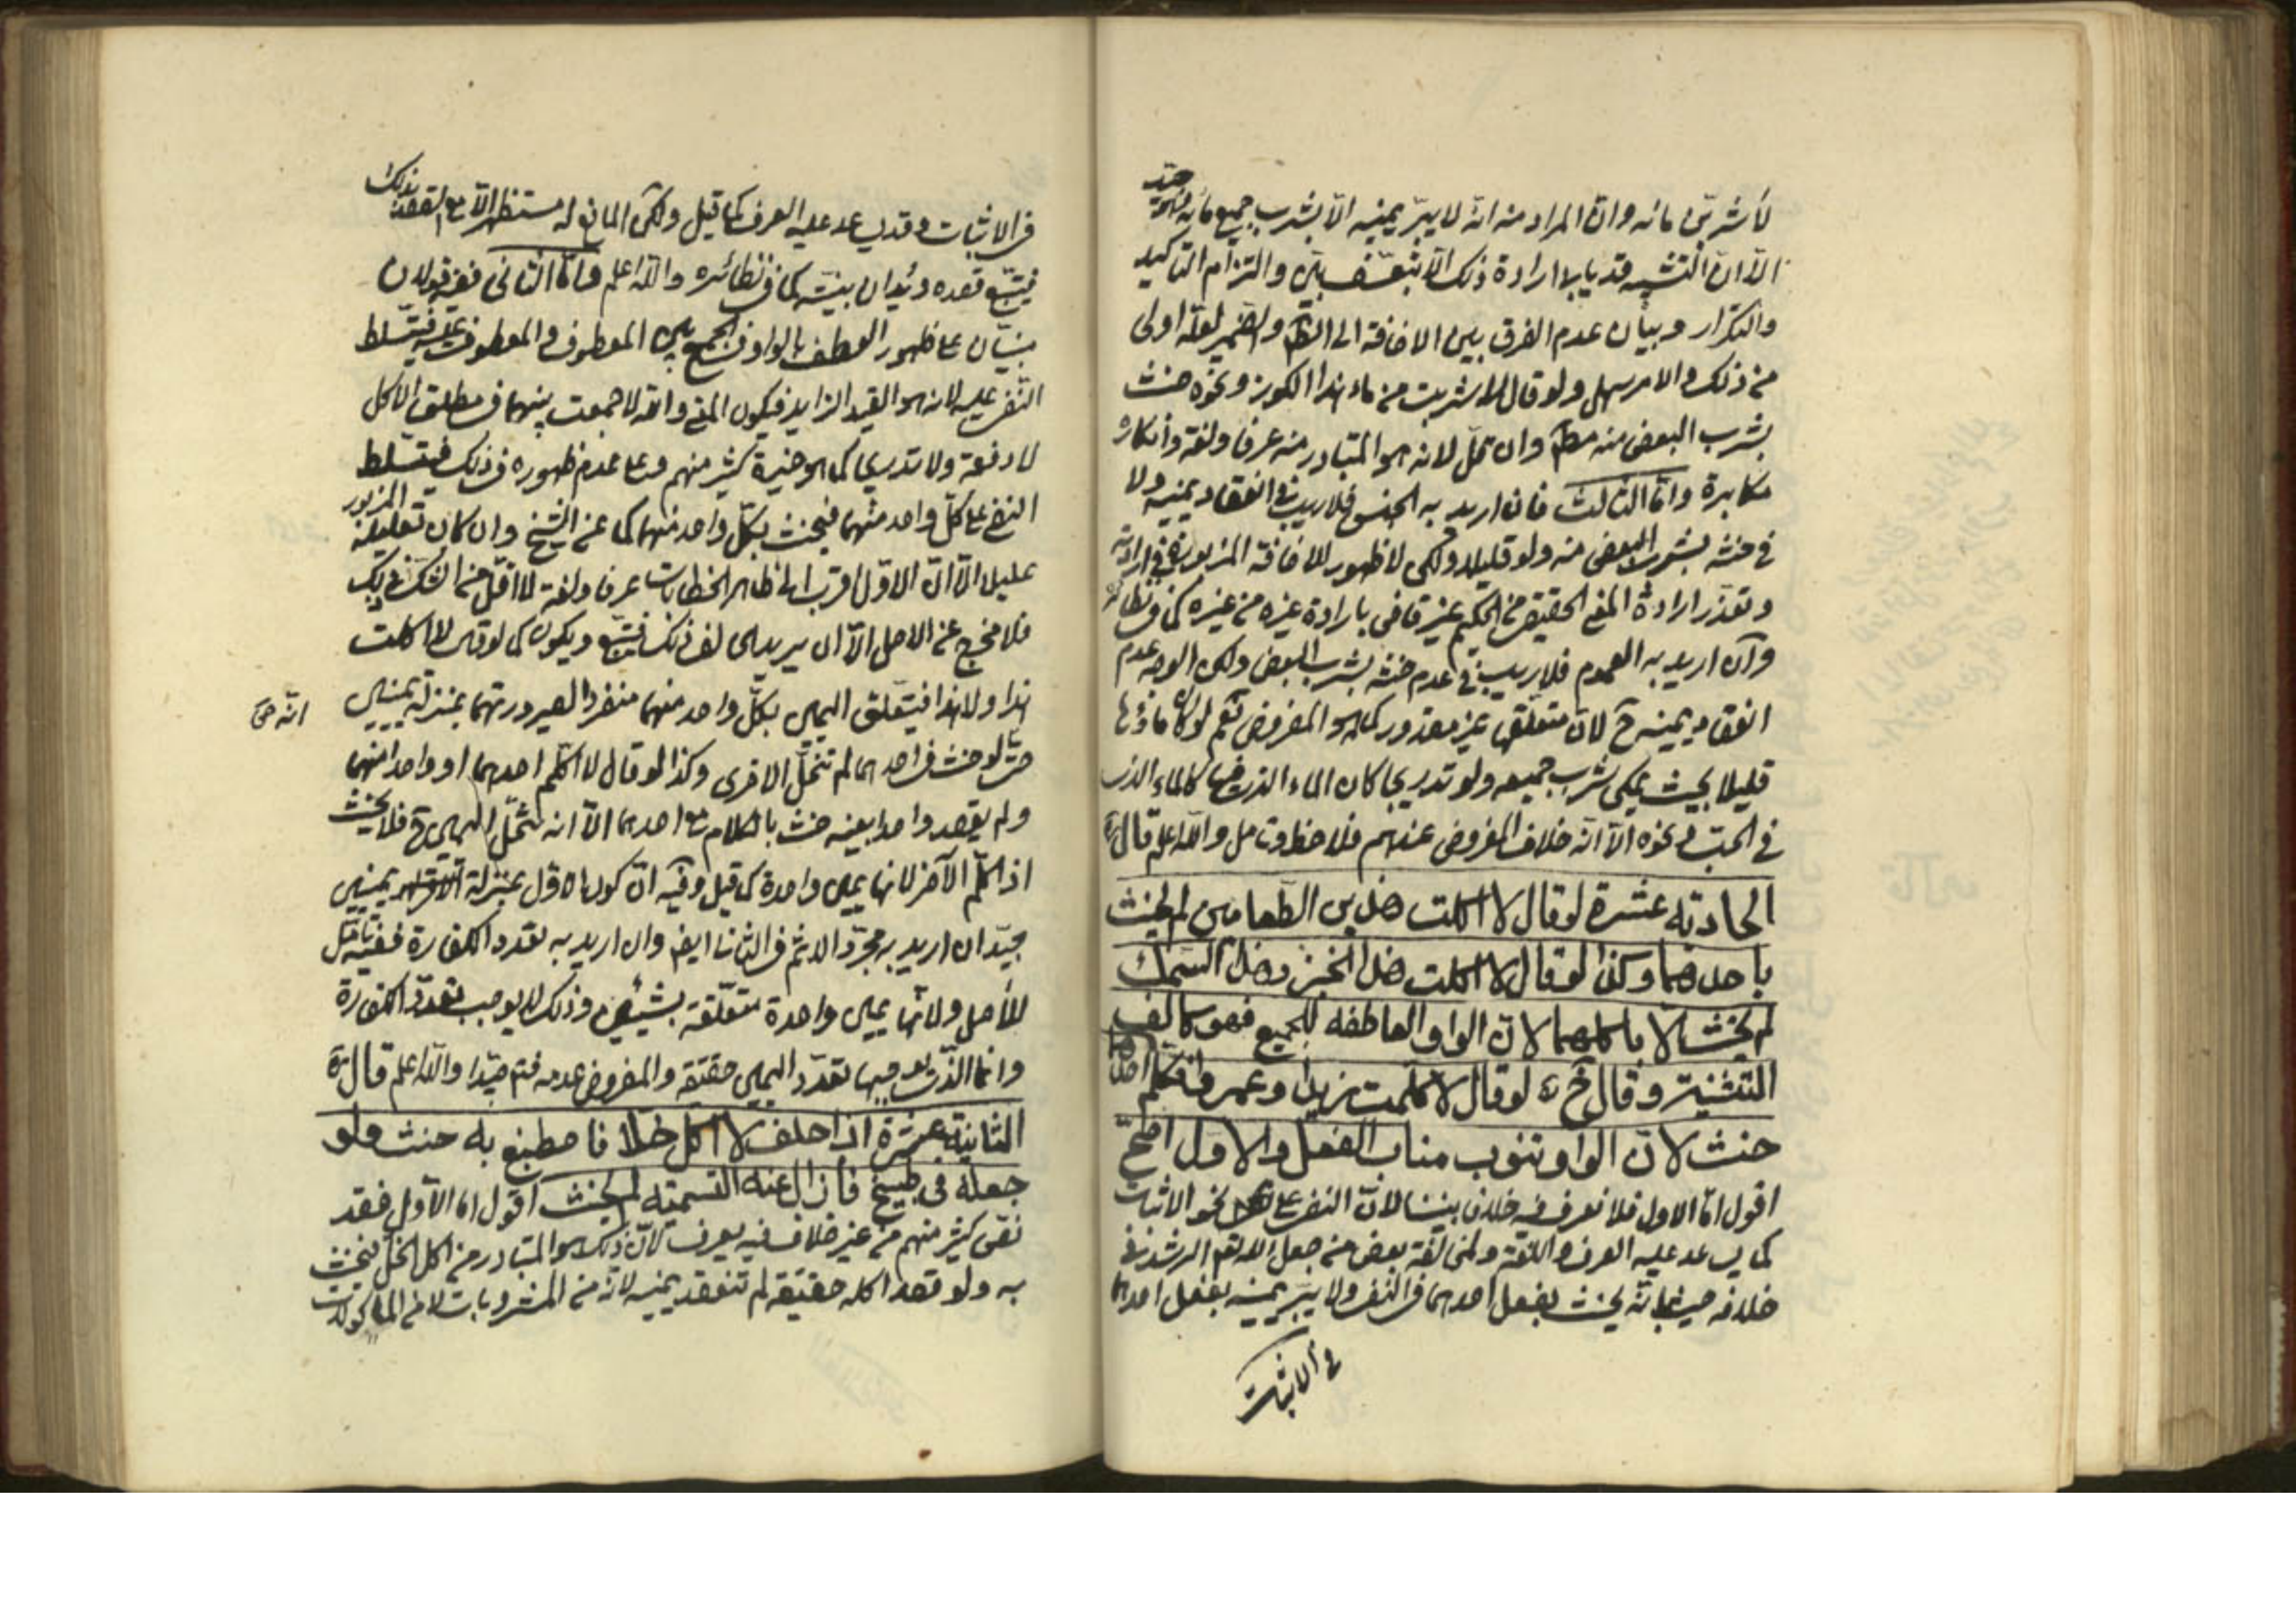 لأشربن مائه وان المراد منه انه لا يبر يمينه الا بشرب جميع مائه
الا ان التشبيه قد يابى ارادة ذلك الا بتعسف بين والتزام التاكيد
والتكرار وبيان عدم الفرق بين الاضافة الى الظ والضمير لعله اولى
من ذلك والامر سهل ولو قال لا شربت من ماء هذا الكوز ونحوه حنث
بشرب البعض منه مط وان قل لانه هو المتبادر منه عرفا ولغة وانكاره
مكابرة واما الثالث فان اريد به الجنس فلا ريب في انعقاد يمينه ولا
في حنثه بشرب البعض منه ولو قليلا ولكن لا ظهور للاضافة المزبورة في ارادته
وتعذر ارادة المعنى الحقيقي من الحكيم غير قاض بارادة غيره من غيره كما في نظائره
وان اريد به العموم فلا ريب في عدم حنثه بشرب البعض ولكن الوجه عدم
انعقاد يمينه ح لان متعلقها غير مقدور كما هو المفروض نعم لو كان ماؤها
قليلا بحيث يمكن شرب جميعه ولو تدريجا كان الماء الذي فيها كالماء الذي
في الحب ونحوه الا انه خلاف المفروض عندهم فلاحظ وتامل والله اعلم قال
الحاديه عشرة لو قال لا اكلت هذين الطعامين لم يحنث
باحدهما وكذا لو قال لا اكلت هذا الخبز وهذا السمك
لم يحنث الا باكلهما لان الواو العاطفه للجميع فهو كالف
التثنية وقال خ لو قال لا كلمت زيدا وعمروا فكلم احدهما
حنث لان الواو تنوب مناب الفعل والاول اصح
اقول اما الاول فلا نعرف فيه خلافا بيننا لان النفي على نحو الاثبات
كما يساعد عليه العرف واللغة ومخالفة بعض من جعل الله تعم الرشد في
خلافه حيث انه يحنث بفعل احدهما في النفي ولا يبر يمينه بفعل احدهما
في الاثبات
في الاثبات وقد يساعد عليه العرف كما قيل ولكن المانع له مستظهر الا مع القصد بذلك
فيتبع قصده ويدان بنيته كما في نظائره والله اعلم واما الثاني ففيه قولان
مبنيان على ظهور العطف بالواو في الجمع بين المعطوف والمعطوف عليه فيتسلط
النفي عليه لانه هو القيد الزايد فيكون المعنى والله لا جمعت بينهما في مطلق الاكل
لا دفعة ولا تدريجا كما هو خيرة كثير منهم وعلى عدم ظهوره في ذلك فيتسلط
النفي على كل واحد منهما فيحنث بكل واحد منهما كما عن الشيخ وان كان تعليله المزبور
عليل الا ان الاول اقرب الى ظاهر الخطابات عرفا ولغة لا اقل من الشك في ذلك
فلا مخرج عن الاصل الا ان يريد الحالف ذلك فيتبع ويكون كما لو قال لا اكلت
هذا ولا هذا فيتعلق اليمين بكل واحد منهما منفردا لصيرورتهما بمنزلة يمينين
حتى لو حنث في احدهما لم تنحل الاخرى وكذا لو قال لا اكلم احدهما او واحدا منهما
ولم يقصد واحدا بعينه حنث بالكلام مع احدهما الا انه تنحل اليمين ح فلا يحنث
اذا كلم الاخر لانها يمين واحدة كما قيل وفيه ان كون الاول بمنزلة يمينين
جيد ان اريد به مجرد الاثم في الثاني ايض وان اريد به تعدد الكفارة ففيه تامل
للاصل ولانها يمين واحدة متعلقة بشيئين وذلك لا يوجب تعدد الكفارة
وانما الذي يوجبها تعدد اليمين حقيقة والمفروض عدمه فتم جيدا والله اعلم قال
الثانية عشرة اذا حلف لا اكل خلا فاصطبغ به حنث ولو
جعله في طبيخ فازال عنه التسمية لم يحنث اقول اما الاول فقد
نص كثير منهم من غير خلاف فيه يعرف لان ذلك هو المتبادر من اكل الخل فيحنث
به ولو قصد اكله حقيقة لم تنعقد يمينه لانه من المشروبات لا من الماكولات